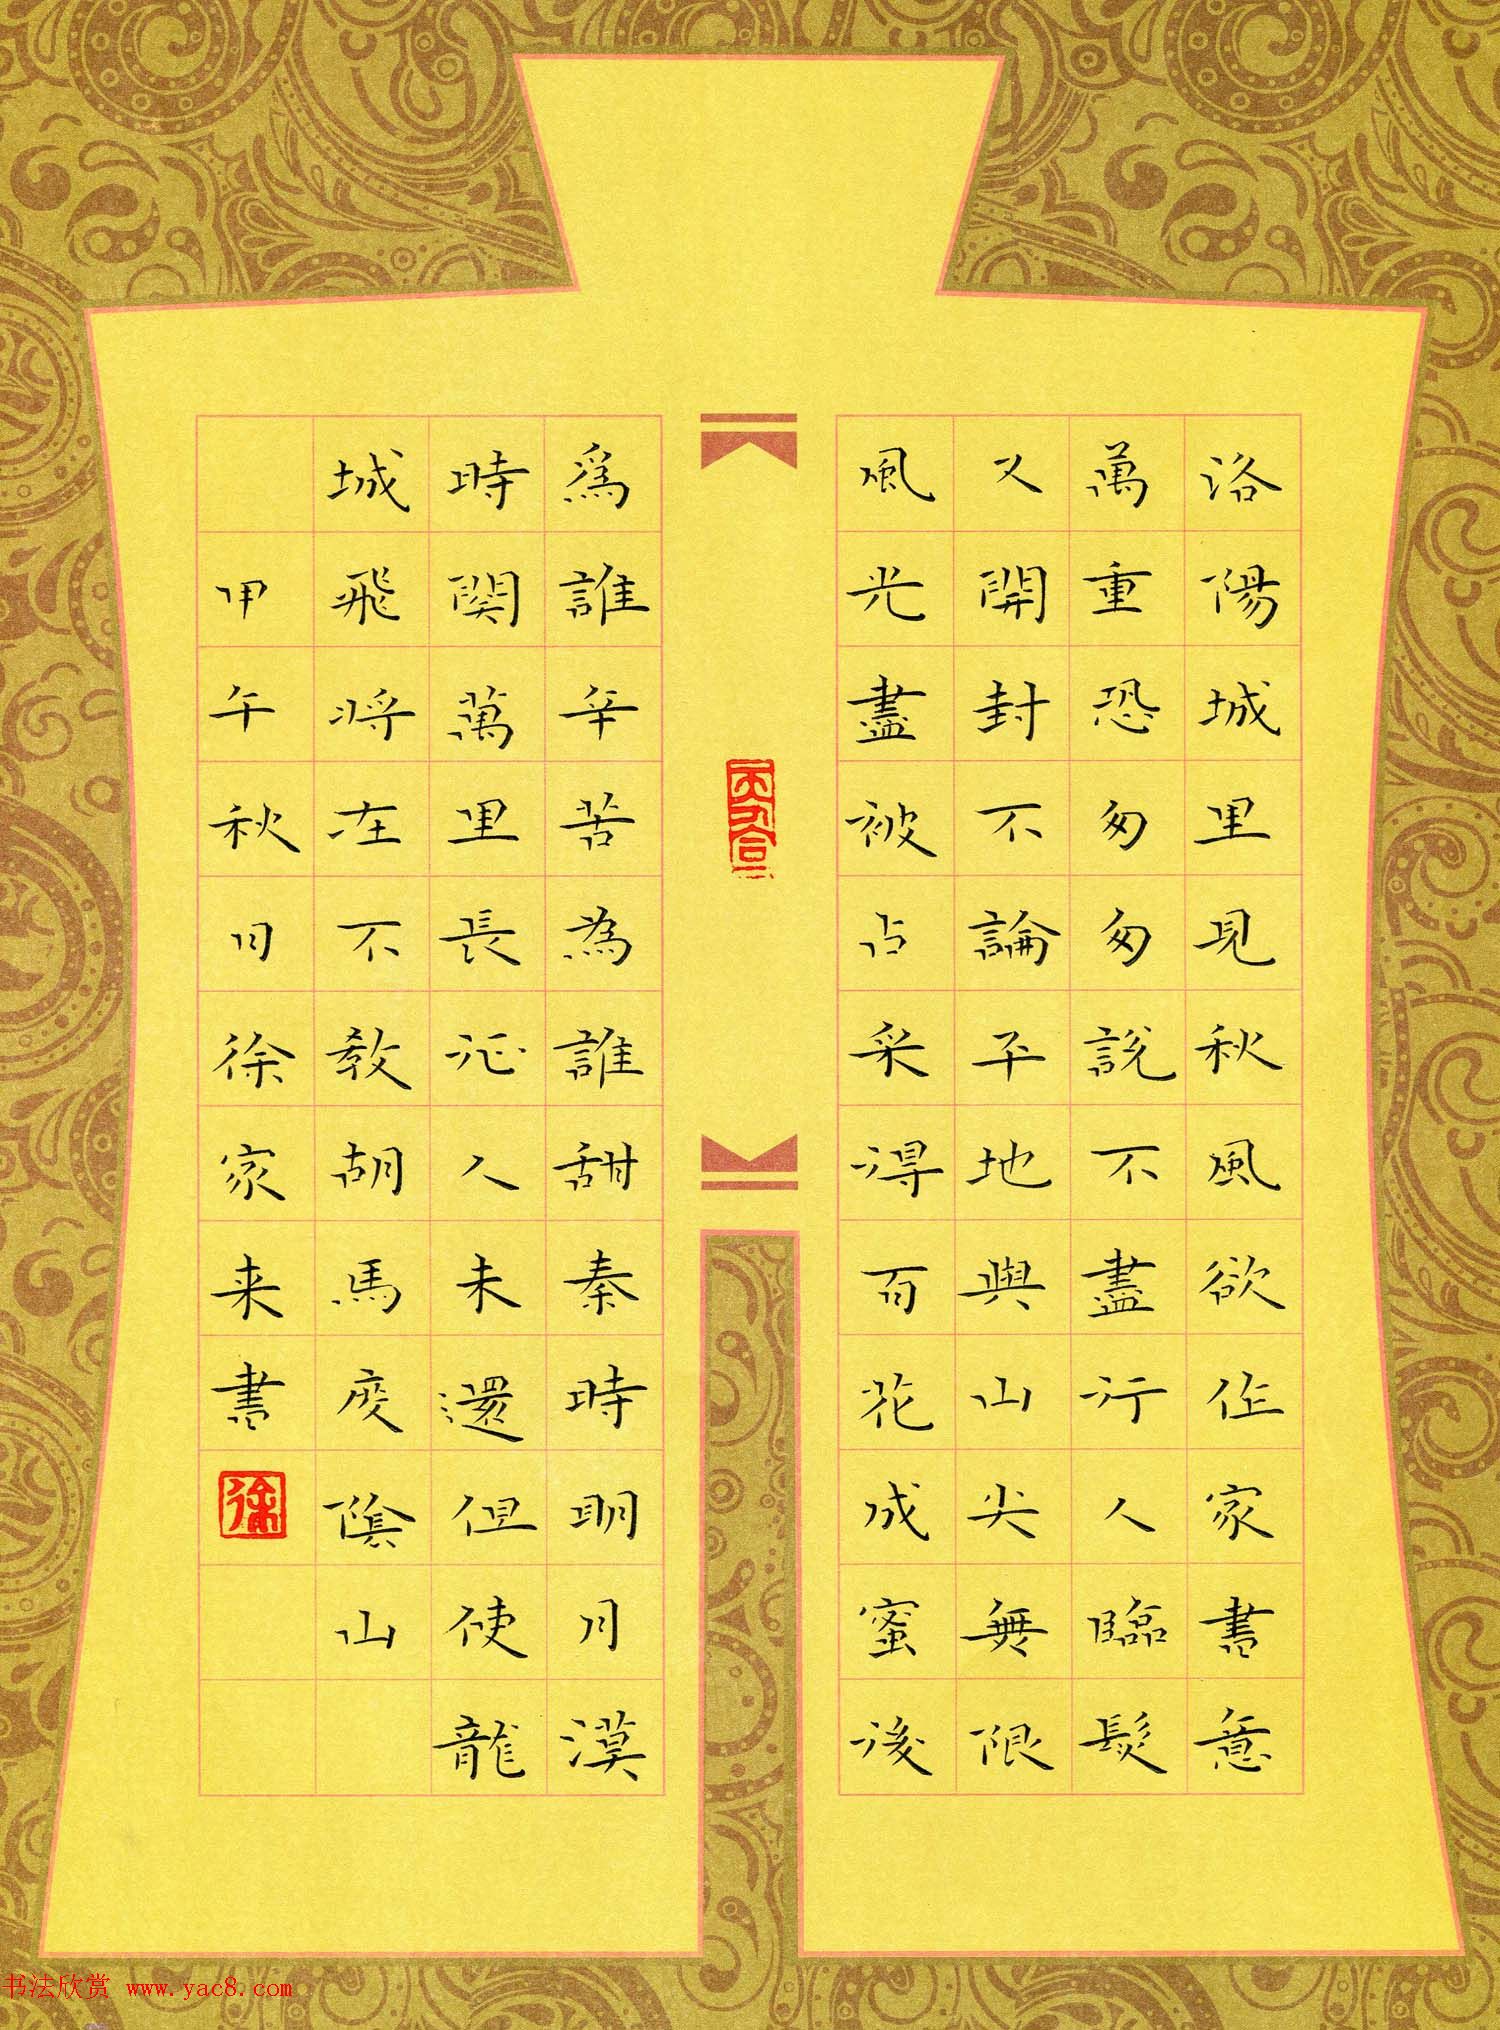 洛陽城里見秋風欲作家書意
萬重恐匆匆說不盡行人臨髮
又開封不論平地與山尖無限
風光盡被占采得百花成蜜後
爲誰辛苦為誰甜秦時明月漢
時関萬里長征人未還但使龍
城飛将在不教胡馬度陰山
甲午秋日徐家来書
徐
书法欣赏 www.yac8.com